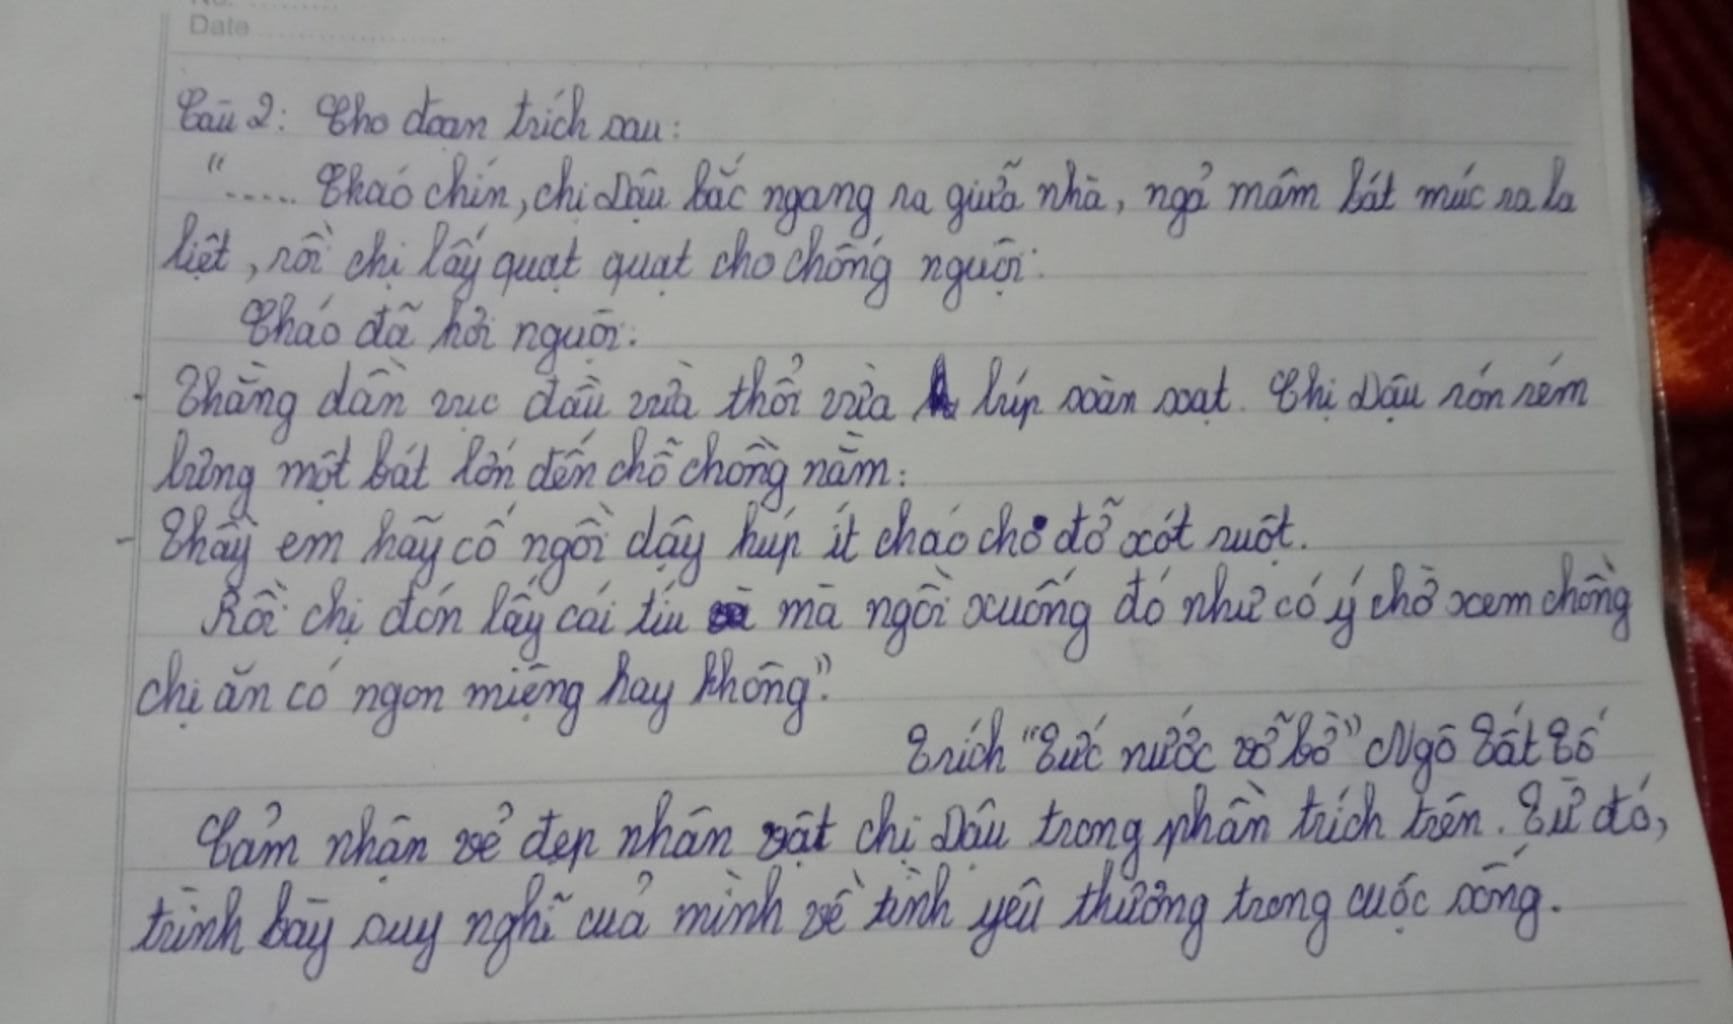 No.
Date
Câu 2: Cho đoạn trích sau:
"..... Cháo chín, chị Dậu bắc ngang ra giữa nhà, ngả mâm bát múc ra la
liệt, rồi chị lấy quạt quạt cho chóng nguội.
Cháo đã hơi nguội.
- Thằng dần vục đầu vừa thổi vừa húp soàn soạt. Chị Dậu rón rém
bưng một bát lớn đến chỗ chồng nằm:
- Thầy em hãy cố ngồi dậy húp ít cháo cho đỡ xót ruột.
Rồi chị đón lấy cái tỉu mà ngồi xuống đó như có ý chờ xem chồng
chị ăn có ngon miệng hay không".
Trích "Tức nước vỡ bờ" Ngô Tất Tố
Cảm nhận vẻ đẹp nhân vật chị Dậu trong phần trích trên. Từ đó,
trình bày suy nghĩ của mình về tình yêu thương trong cuộc sống.